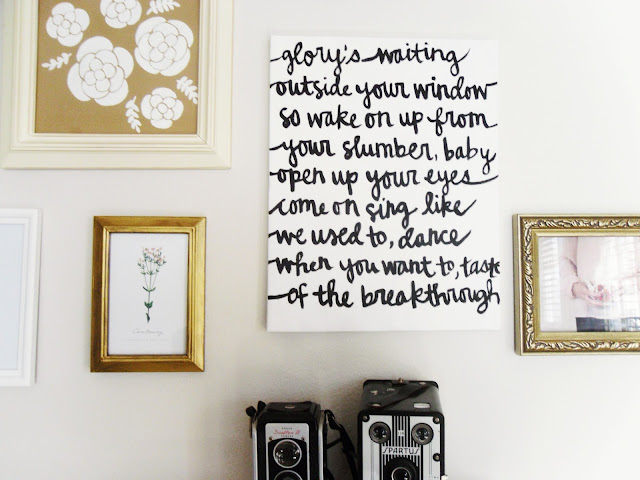 glory's waiting
outside your window
so wake on up from
your slumber, baby
open up your eyes
come on sing like
we used to, dance
when you want to, taste
of the breakthrough
SPARTUS